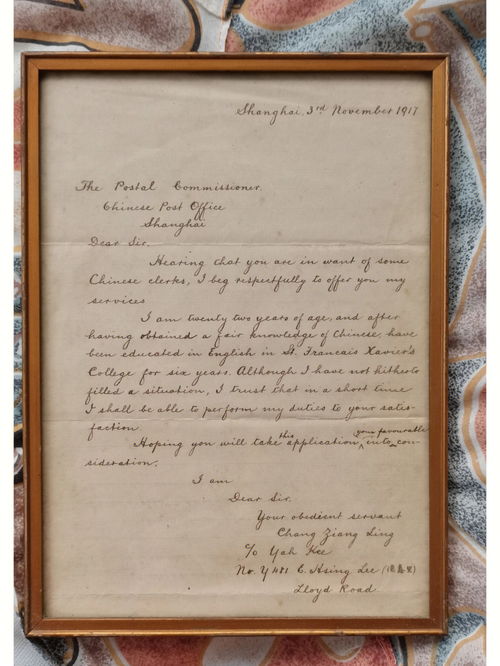 Shanghai, 3rd November 1917
The Postal Commissioner,
Chinese Post Office
Shanghai
Dear Sir,
Hearing that you are in want of some
Chinese clerks, I beg respectfully to offer you my
services
I am twenty two years of age, and after
having obtained a fair knowledge of Chinese, have
been educated in English in St. Francais Xavier's
College for six years. Although I have not hitherto
filled a situation, I trust that in a short time
I shall be able to perform my duties to your satis-
faction.
Hoping you will take this application, into your favourable con-
sideration,
I am
Dear Sir,
Your obedient servant
Chang Ziang Ling
c/o Yah Kee
No. Y 481 E. Hsing Lee
Lloyd Road